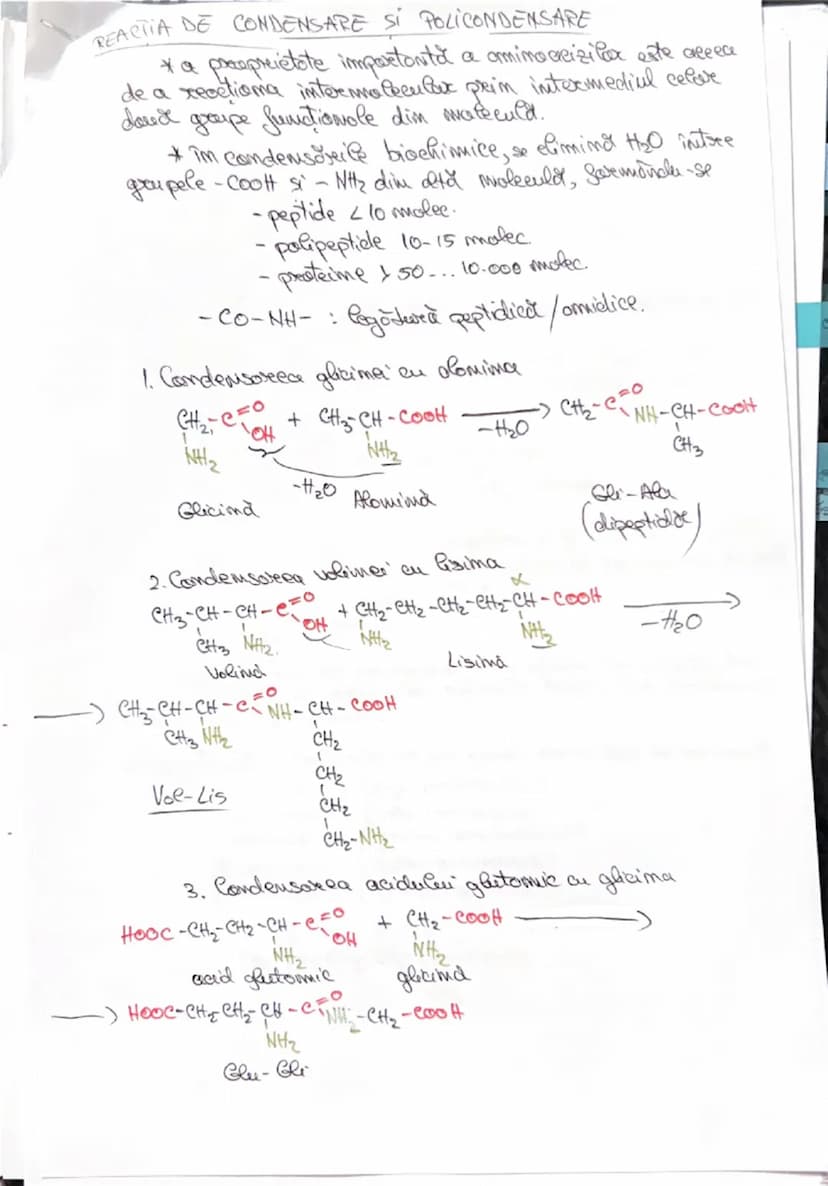 REACȚIA DE CONDENSARE SI POLICONDENSARE
* o proprietate importantă a aminoacizilor este aceea
de a reacționa intermolecular prim intermediul celor
două grupe funcționale dim moleculă.
* îm condensările biochimice, se elimină H2O între
grupele -COOH și -NH2 dim altă moleculă, formându-se
- peptide < 10 molec.
- polipeptide 10-15 molec.
- proteime > 50 ... 10.000 molec.
- CO-NH- : legătură peptidică / amidice.
1. Condensarea glicimei cu alamima
CH2-C=O OH + CH3-CH-COOH → CH2-C=O NH-CH-COOH
NH2 NH2 -H2O CH3
-H2O
Glicimă Alamimă Gli-Ala
(dipeptidă)
2. Condensarea valimei cu lisima
α
CH3-CH-CH-C=O OH + CH2-CH2-CH2-CH2-CH-COOH →
CH3 NH2 NH2 NH2 -H2O
Valimă Lisimă
→ CH3-CH-CH-C=O NH-CH-COOH
CH3 NH2 CH2
CH2
Val-Lis CH2
CH2-NH2
3. Condensarea acidului glutamic cu glicima
HOOC-CH2-CH2-CH-C=O OH + CH2-COOH →
NH2 NH2
acid glutamic glicimă
→ HOOC-CH2-CH2-CH-C=O NH-CH2-COOH
NH2
Glu-Gli